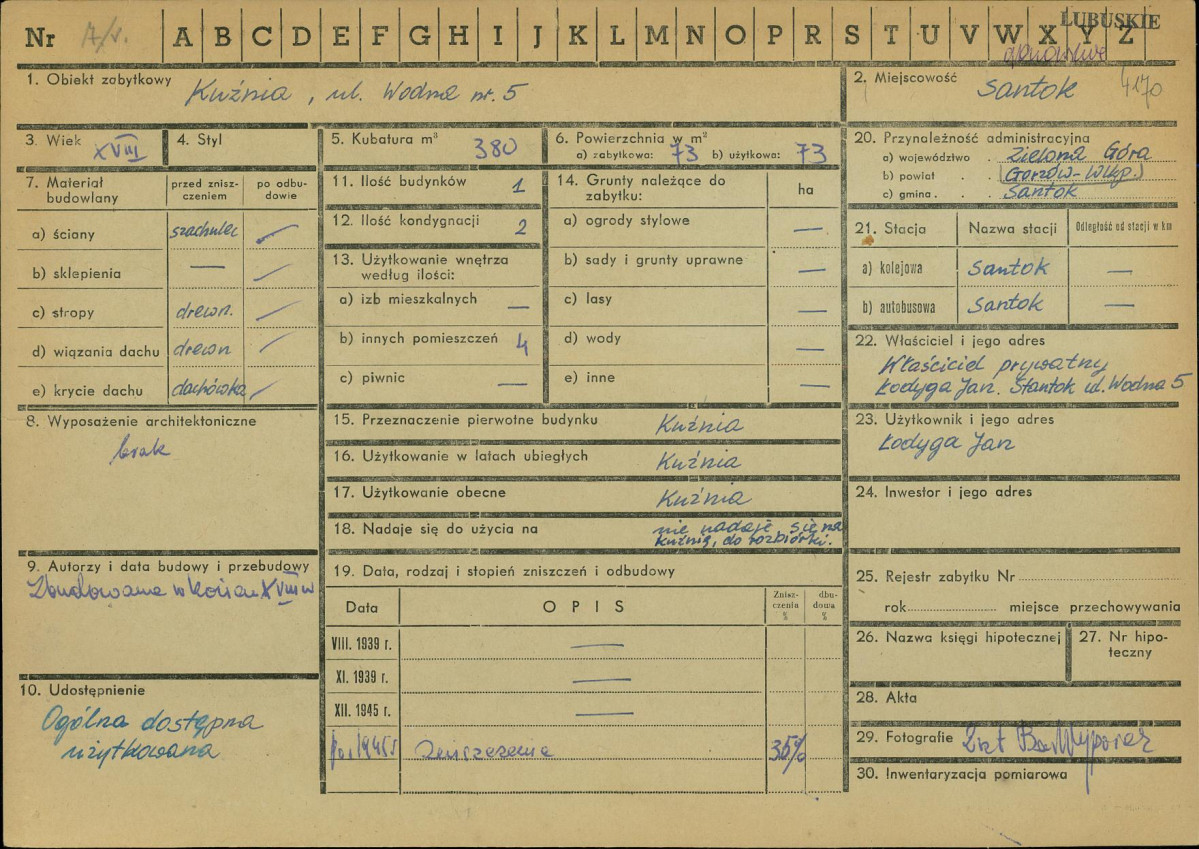 Nr A B C D E F G H I J K L M N O P R S T U V W X Y Z
LUBUSKIE
1. Obiekt zabytkowy Kuźnia, ul. Wodna nr. 5
2. Miejscowość
Santok 4170
3. Wiek XVIII
4. Styl
5. Kubatura m³ 380
6. Powierzchnia w m²
a) zabytkowa: 73 b) użytkowa: 73
7. Materiał budowlany
przed zniszczeniem
po odbudowie
a) ściany szachulec —
b) sklepienia — —
c) stropy drewn. —
d) wiązania dachu drewn —
e) krycie dachu dachówka —
8. Wyposażenie architektoniczne
brak
9. Autorzy i data budowy i przebudowy
Zbudowana w końcu XVIII w
10. Udostępnienie
Ogólna dostępna
użytkowana
11. Ilość budynków 1
12. Ilość kondygnacji 2
13. Użytkowanie wnętrza
według ilości:
a) izb mieszkalnych —
b) innych pomieszczeń 4
c) piwnic —
14. Grunty należące do
zabytku:
ha
a) ogrody stylowe —
b) sady i grunty uprawne —
c) lasy
d) wody —
e) inne —
15. Przeznaczenie pierwotne budynku Kuźnia
16. Użytkowanie w latach ubiegłych Kuźnia
17. Użytkowanie obecne Kuźnia
18. Nadaje się do użycia na nie nadaje się na
kuźnię, do rozbiórki.
19. Data, rodzaj i stopień zniszczeń i odbudowy
Data OPIS Zniszczenia % dbudowa %
VIII. 1939 r. —
XI. 1939 r. —
XII. 1945 r. —
po 1945 r Zniszczenie 35%
20. Przynależność administracyjna
a) województwo . Zielona Góra
b) powiat . (Gorzów-Wlkp.)
c) gmina . . Santok
21. Stacja Nazwa stacji Odległość od stacji w km
a) kolejowa Santok —
b) autobusowa Santok —
22. Właściciel i jego adres
Właściciel prywatny
Łodyga Jan. Stantok ul. Wodna 5
23. Użytkownik i jego adres
Łodyga Jan
24. Inwestor i jego adres
25. Rejestr zabytku Nr
rok miejsce przechowywania
26. Nazwa księgi hipotecznej
27. Nr hipoteczny
28. Akta
29. Fotografie
30. Inwentaryzacja pomiarowa